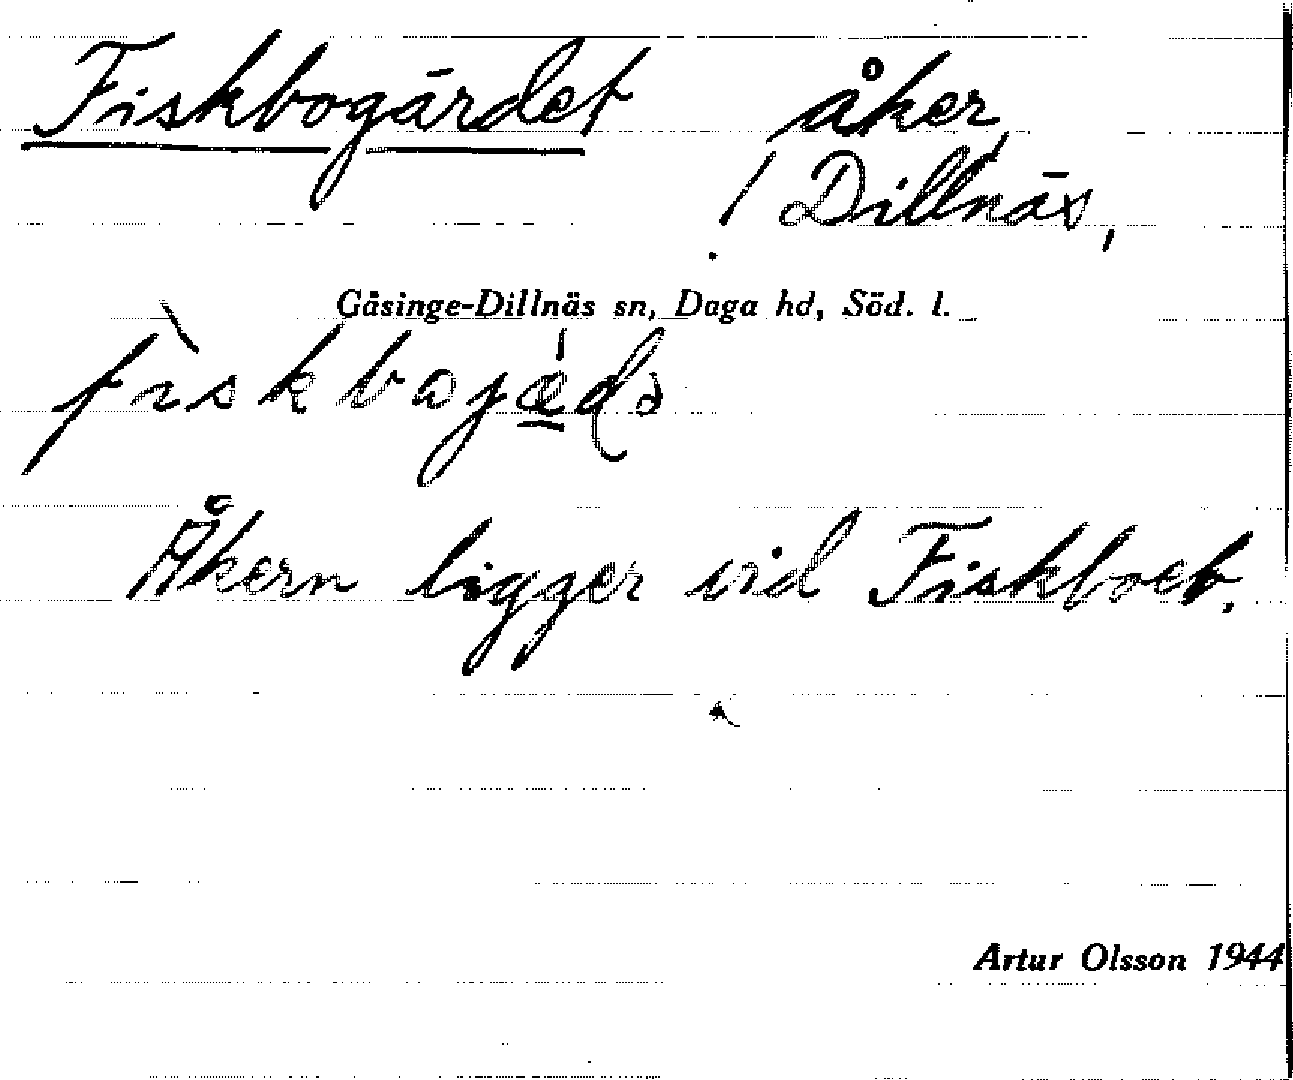 Fiskbogärdet åker,
/ Dillnäs,
Gåsinge-Dillnäs sn, Daga hd, Söd. l.
Åkern ligger vid Fiskboet.
Artur Olsson 1944